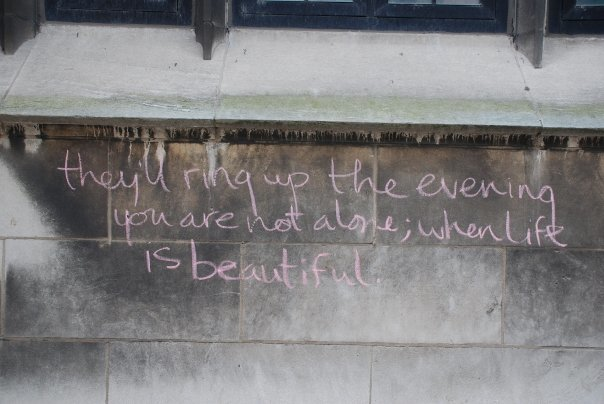 they'll ring up the evening
you are not alone; when life
is beautiful.